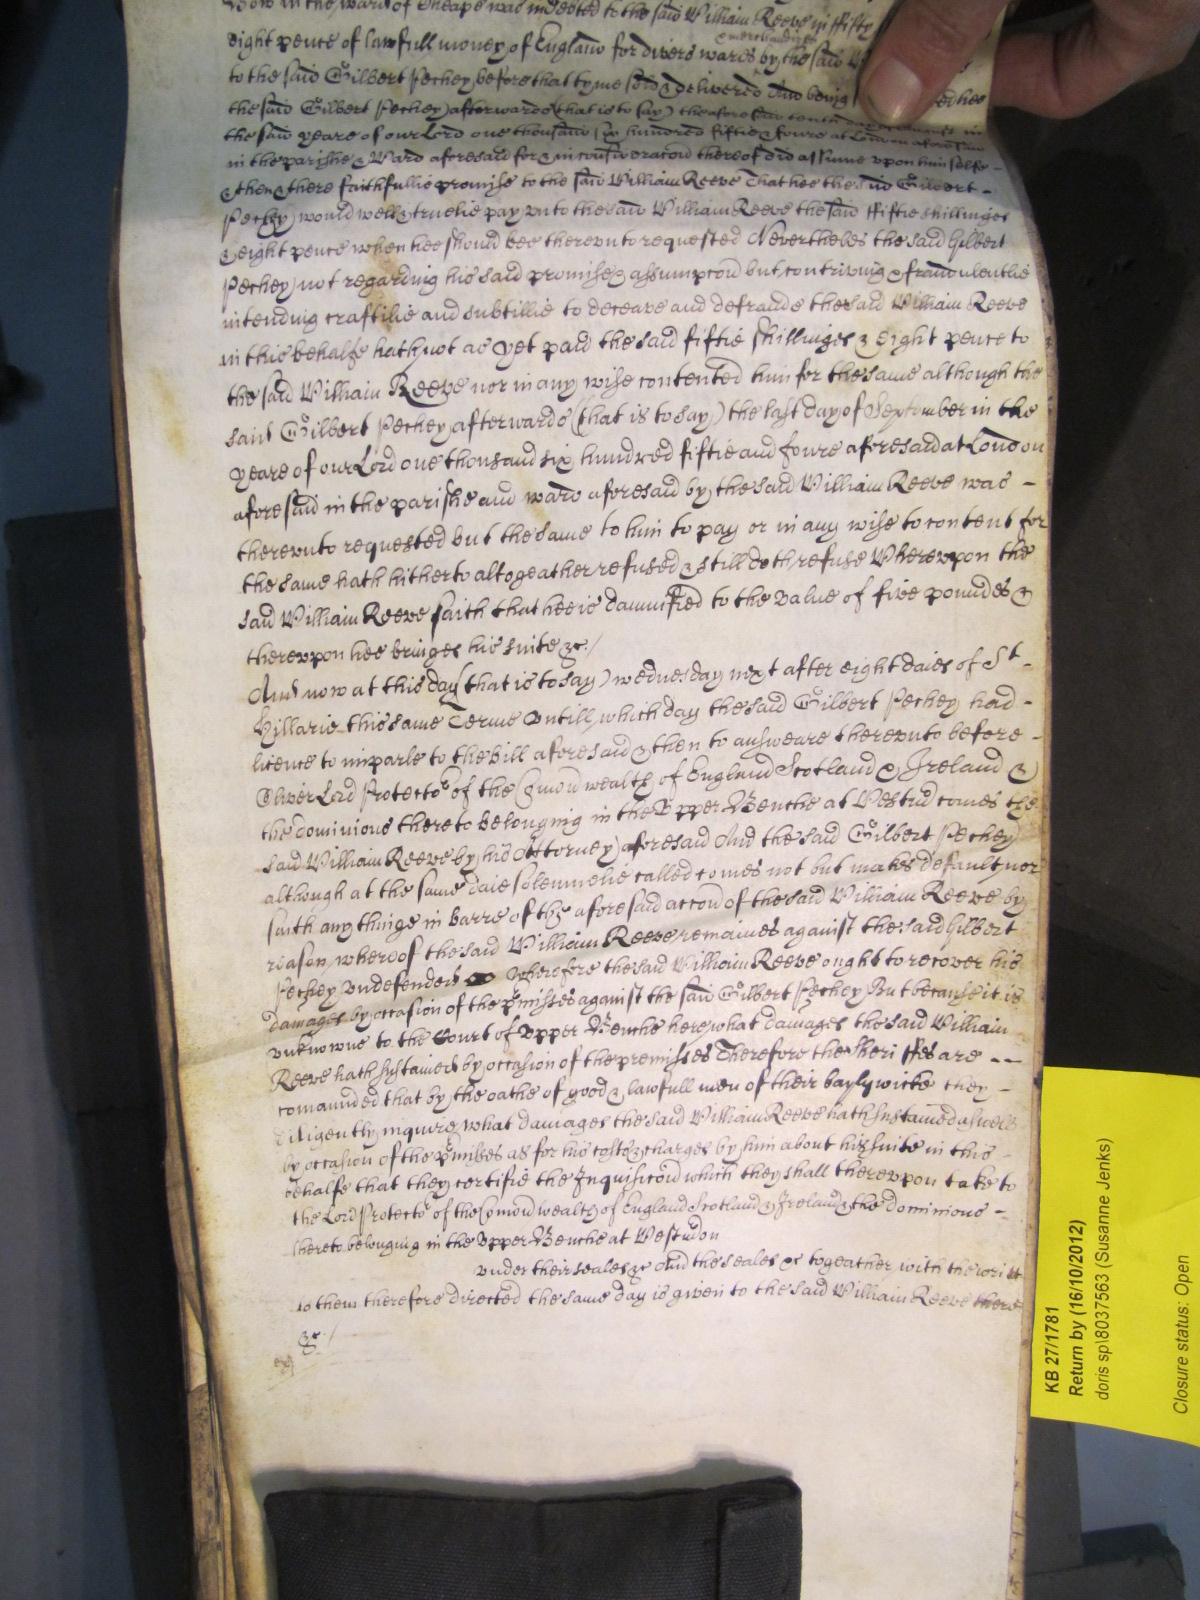 Bow in the ward of Cheape was indebted to the said William Reeve in fifty
eight pence of lawfull money of England for divers wares by the said W
& merchandizes
to the said Gilbert Pechey before that tyme sold & delivered And being
the said Gilbert Pechey afterwards (that is to say) the aforesaid tenth day
the said yeare of our Lord one thousand six hundred fiftie & foure at London aforesaid
in the parishe & Ward aforesaid for & in consideracon thereof did assume upon himselfe -
& then & there faithfullie promise to the said William Reeve That hee the said Gilbert -
Pechey would well & truelie pay unto the said William Reeve the said fiftie shillinges
& eight pence when hee should bee thereunto requested Nevertheles the said Gilbert
Pechey not regarding his said promise & assumpcon but contriving & fraudulentlie
intending craftilie and subtillie to deceave and defraude the said William Reeve
in this behalfe hath not as yet paid the said fiftie shillinges & eight pence to
the said William Reeve nor in any wise contented him for the same although the
said Gilbert Pechey afterwards (that is to say) the last day of September in the
yeare of our Lord one thousand six hundred fiftie and foure aforesaid at London
aforesaid in the parishe and ward aforesaid by the said William Reeve was -
thereunto requested but the same to him to pay or in any wise to content for
the same hath hitherto altogeather refused & still doth refuse Whereupon the
said William Reeve saith that hee is damnified to the value of five poundes &
thereupon hee bringes his suite &c /
And now at this day (that is to say) wednesday next after eight daies of St -
Hillarie this same Terme untill which day the said Gilbert Pechey had -
licence to imparle to the bill aforesaid & then to answeare thereunto before -
Oliver Lord Protector of the Comonwealth of England Scotland & Ireland &
the dominions thereto belonging in the Upper Benche at Westm comes the
said William Reeve by his Attorney aforesaid And the said Gilbert Pechey
although at the same daie solemnelie called comes not but makes default nor
saith any thinge in barre of the aforesaid accon of the said William Reeve by
reason whereof the said William Reeve remaines against the said Gilbert
Pechey undefended Wherefore the said William Reeve ought to recover his
damages by occasion of the pmisses against the said Gilbert Pechey But because it is
unknowne to the Court of Upper Benche here what damages the said William
Reeve hath sustained by occasion of the premisses Therefore the Sheriffes are --
comaunded that by the oathe of good & lawfull men of their baylywicke they -
diligently inquire what damages the said William Reeve hath sustained aswell
by occasion of the pmisses as for his costes & charges by him about his suite in this -
behalfe that they certifie the Inquisicon which they shall thereupon take to
the Lord Protector of the Comonwealth of England Scotland & Ireland & the dominions -
thereto belonging in the Upper Benche at Westm on
under their seales &c And the seales &c togeather with the writt
to them therefore directed the same day is given to the said William Reeve there
&c /
KB 27/1781
Return by (16/10/2012)
doris sp\8037563 (Susanne Jenks)
Closure status: Open